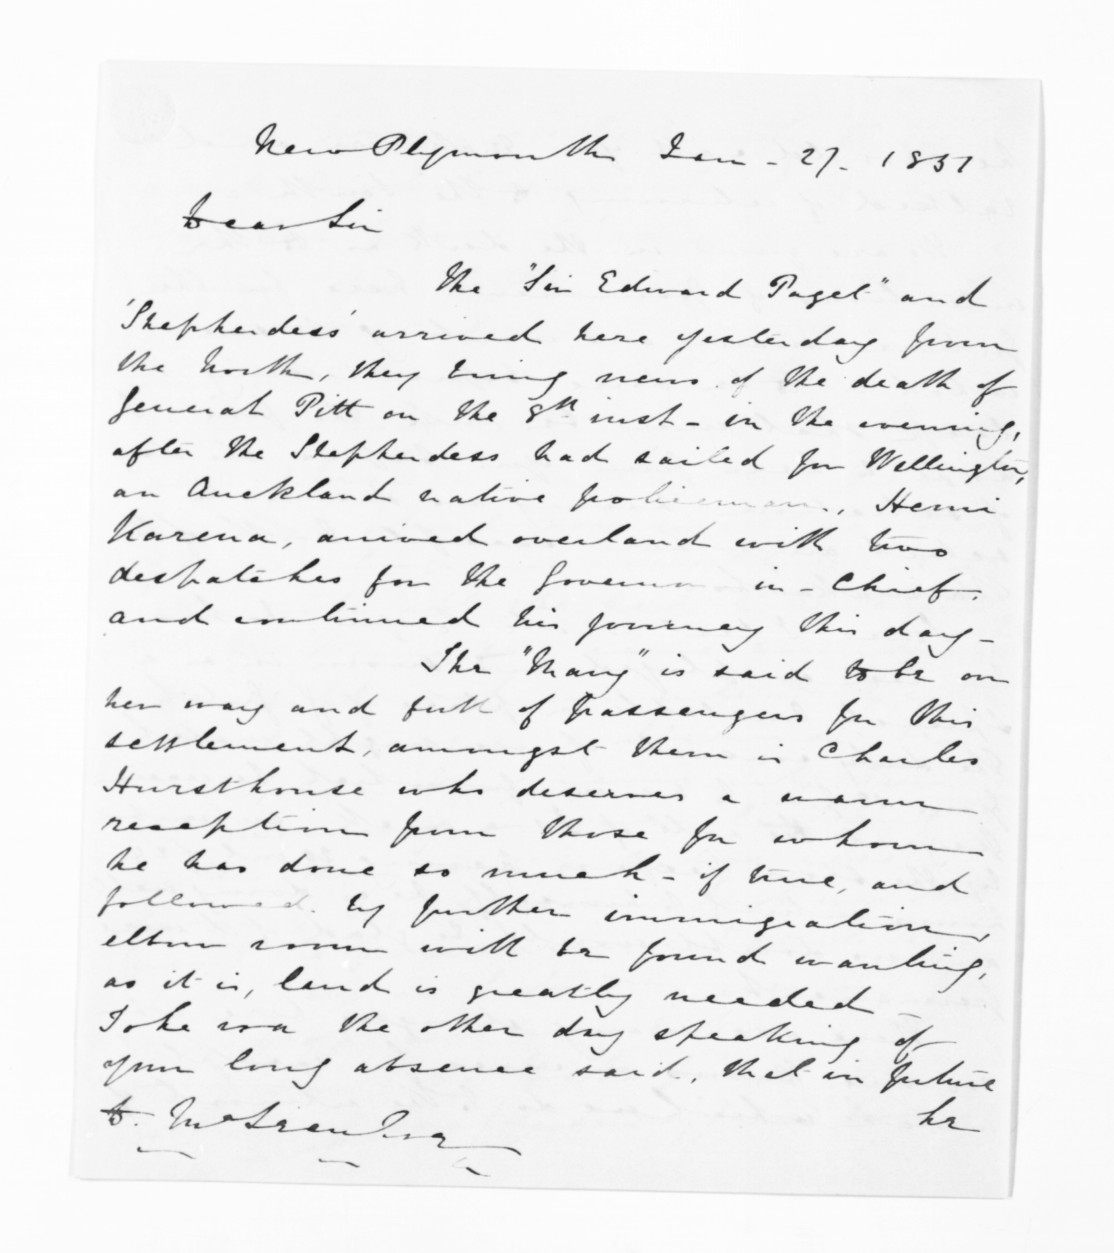 New Plymouth Jan - 27 - 1851
Dear Sir
The "Sir Edward Paget" and
'Shepherdess' arrived here yesterday from
the North, they bring news of the death of
General Pitt on the 8th inst - in the evening,
after the Shepherdess had sailed for Wellington,
an Auckland native policeman, Hemi
Karena, arrived overland with two
despatches for the Governor in - Chief.
and continued his journey this day -
The "Mary" is said to be on
her way and full of passengers for this
settlement, amongst them is Charles
Hursthouse who deserves a warm
reception from those for whom
he has done so much - if true, and
followed by further immigration,
elbow room will be found wanting,
as it is, land is greatly needed
the other day speaking of
your long absence said, that in future
he
D. McLean Esqr